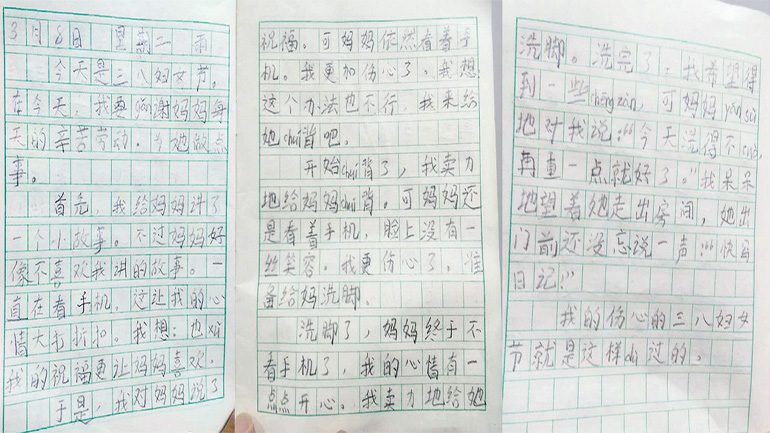 3月8日 星期二 雨
今天是三八妇女节,
在今天,我要gǎn谢妈妈每
天的辛苦劳动。为她做点
事。
首先,我给妈妈讲了
一个小故事。不过妈妈好
像不喜欢我讲的故事。一
直在看手机,这让我的心
情大打折扣。我想:也xǔ
我的祝福更让妈妈喜欢。
于是,我对妈妈说了
祝福。可妈妈依然看着手
机。我更加伤心了。我想
这个办法也不行,我来给
她chuí背吧。
开始chuí背了,我卖力
地给妈妈chuí背。可妈妈还
是看着手机,脸上没有一
丝笑容。我更伤心了,准
备给妈洗脚。
洗脚了,妈妈终于不
看手机了,我的心情有一
点点开心。我卖力地给她
洗脚。洗完了,我希望得
到一些chēng zàn,可妈妈yán sù
地对我说:“今天洗得不cuò,
再重一点就好了。”我呆呆
地望着她走出房间,她出
门前还没忘说一声:“快写
日记!”
我的伤心的三八妇女
节就是这样dù过的。